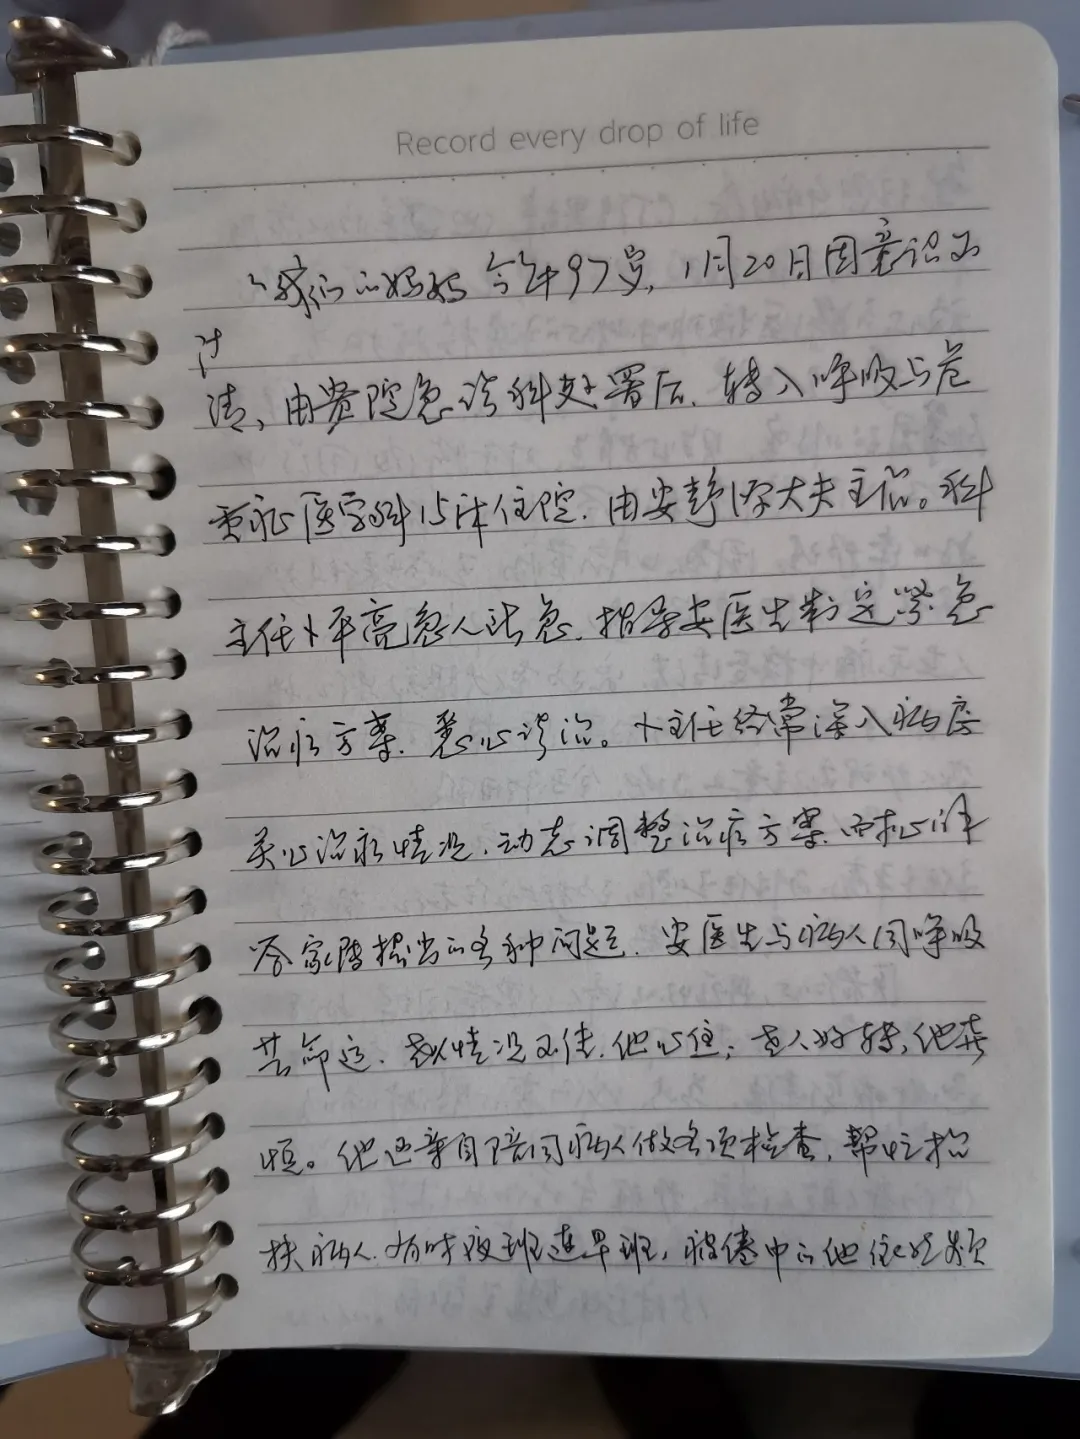 Record every drop of life
我们的妈妈今年97岁，1月20日因意识不
清、由贵院急诊科处置后，转入呼吸与危
重症医学科15床住院，由安静大夫主治。科
主任卜平亮急人法急，指导安医生制定紧急
治疗方案，悉心诊治。卜主任经常深入病房
关心治疗情况，动态调整治疗方案，耐心详
答家属提出的各种问题，安医生与病人同呼吸
共命运，情况不佳，他心住；老人好转，他
。他还亲自陪同病人做各项检查，帮忙抬
扶病人，有时夜班连早班，疲倦中的他